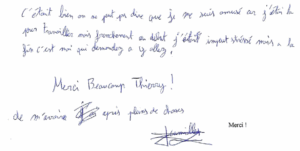 C'était bien on ne peut pas dire que je me suis amusé car j'étais là
pour travailler mais franchement au début j'étais stressé mais à la
fin c'est moi qui demandais à y aller.
Merci Beaucoup Thierry !
de m'avoir appris plein de choses
Merci !